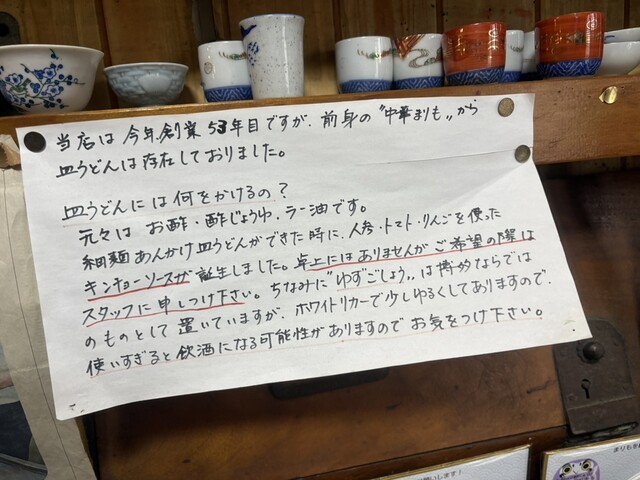 当店は今年創業53年目ですが、前身の"中華まりも"から
皿うどんは存在しておりました。
皿うどんには何をかけるの?
元々は お酢・酢じょうゆ、ラー油です。
細麺あんかけ皿うどんができた時に、人参・トマト・りんごを使った
キンチョーソースが誕生しました。卓上にはありませんがご希望の際は
スタッフに申しつけ下さい。ちなみに"ゆずごしょう"は博多ならでは
のものとして置いていますが、ホワイトリカーで少しゆるくしてありますので、
使いすぎると飲酒になる可能性がありますのでお気をつけ下さい。
します!
まりもき